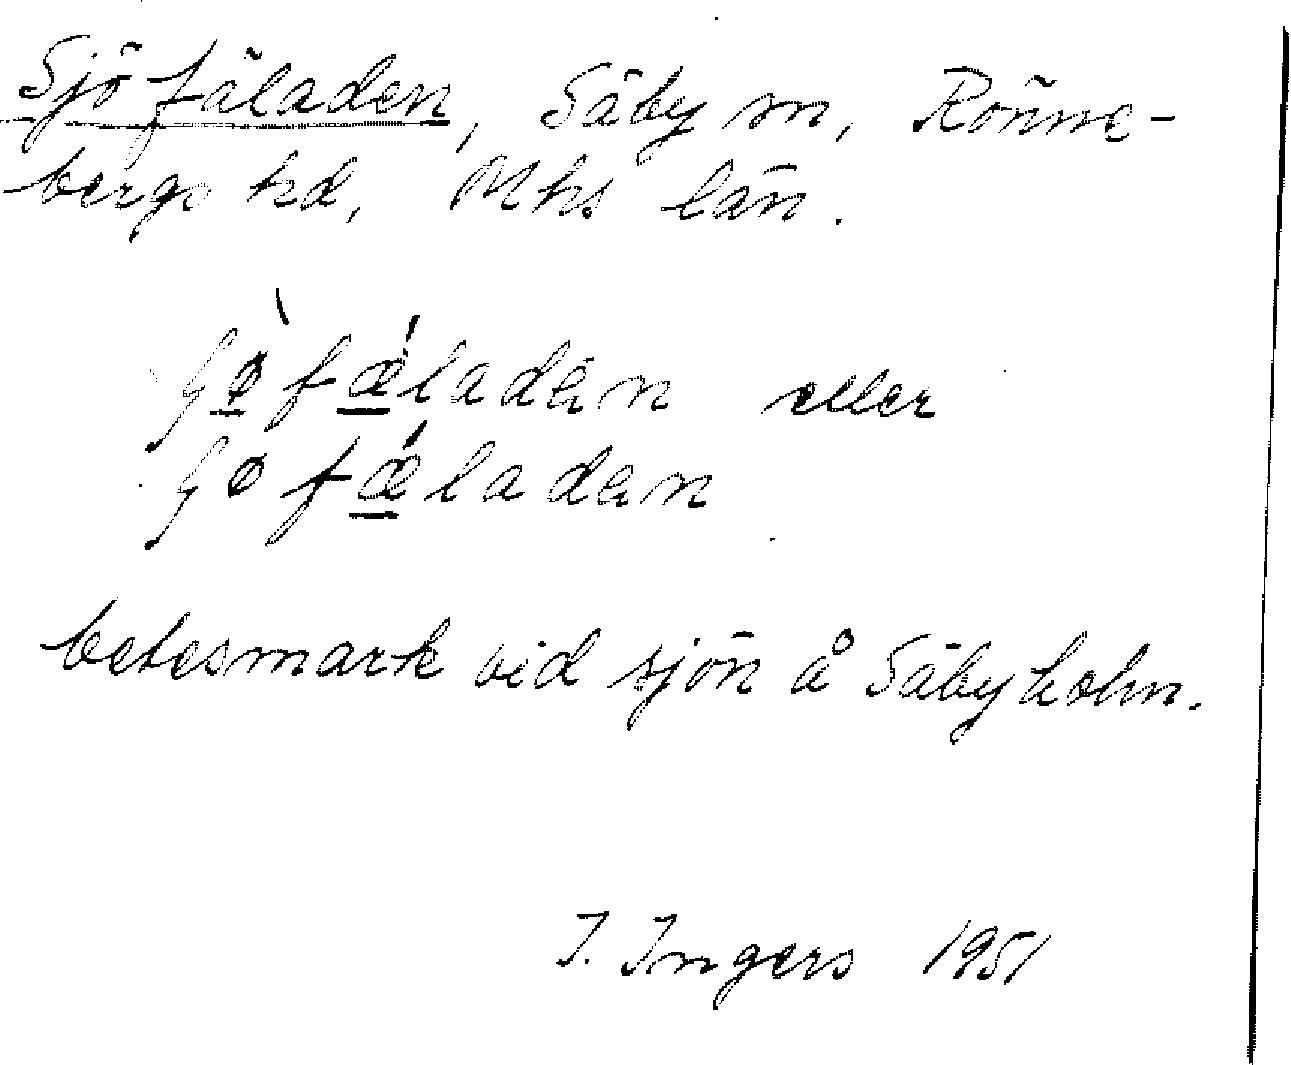 Sjöfäladen, Säby sn, Rönne-
bergs hd, Mhs län.
ʃø̀fǽladan eller
ʃøfǽladan
betesmark vid sjön å Säbyholm.
I. Ingers 1951